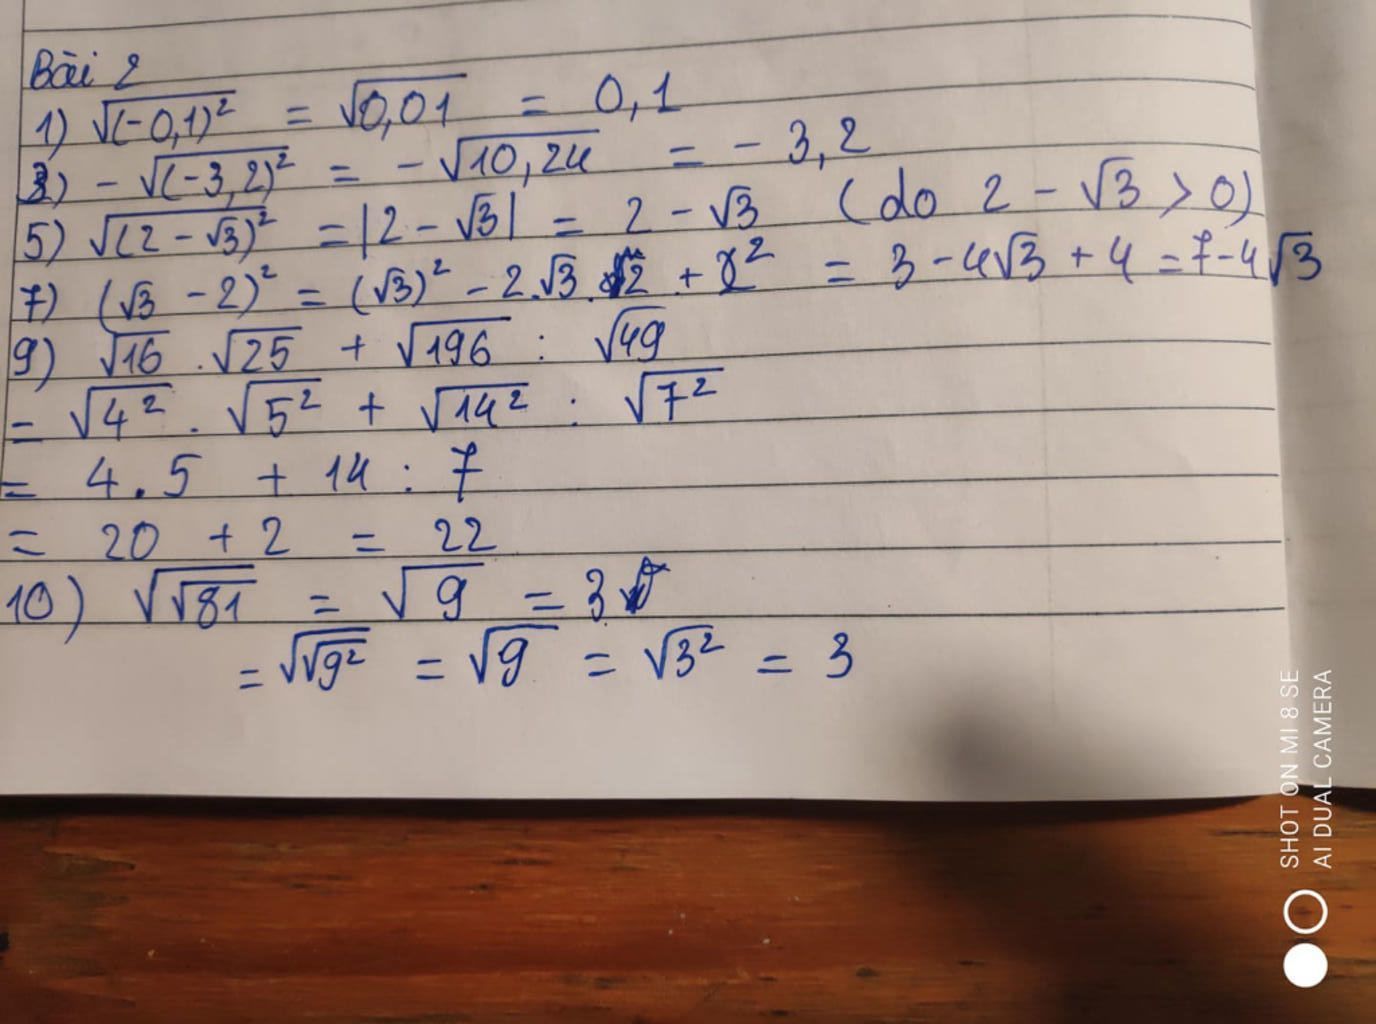 Bài 2
1) √(-0,1)² = √0,01 = 0,1
3) - √(-3,2)² = - √10,24 = - 3,2
5) √(2 - √3)² = |2 - √3| = 2 - √3 (do 2 - √3 > 0)
7) (√3 - 2)² = (√3)² - 2.√3.2 + 2² = 3 - 4√3 + 4 = 7 - 4√3
9) √16 . √25 + √196 : √49
= √4² . √5² + √14² : √7²
= 4.5 + 14 : 7
= 20 + 2 = 22
10) √√81 = √9 = 3
= √√9² = √9 = √3² = 3
SHOT ON MI 8 SE
AI DUAL CAMERA